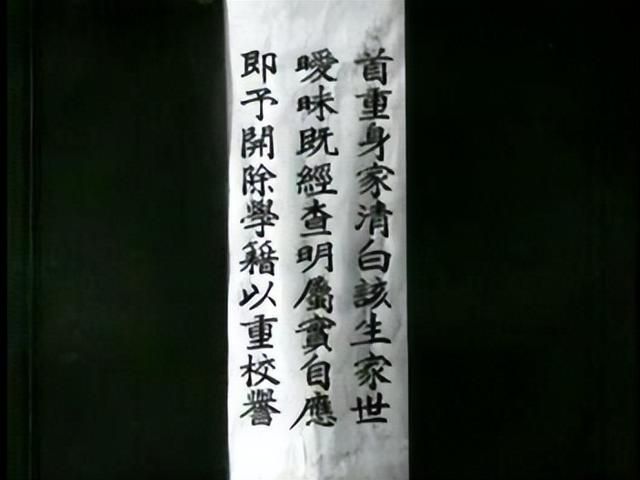 首重身家清白該生家世
曖昧既經查明屬實自應
即予開除學籍以重校譽